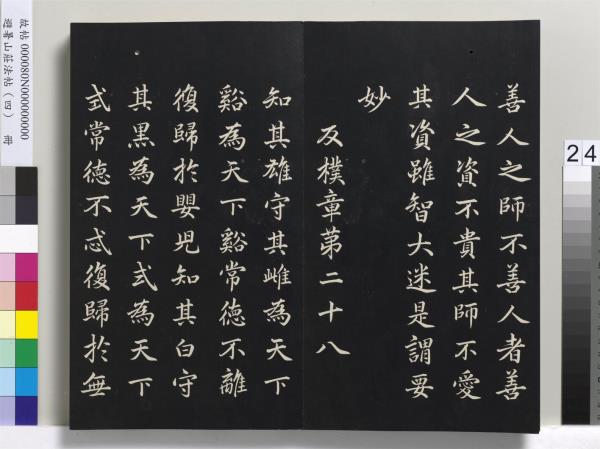 善人之師不善人者善
人之資不貴其師不愛
其資雖智大迷是謂要
妙
反樸章第二十八
知其雄守其雌為天下
谿為天下谿常德不離
復歸於嬰兒知其白守
其黑為天下式為天下
式常德不忒復歸於無
故帖 000080N000000000
避暑山莊法帖(四) 冊
24